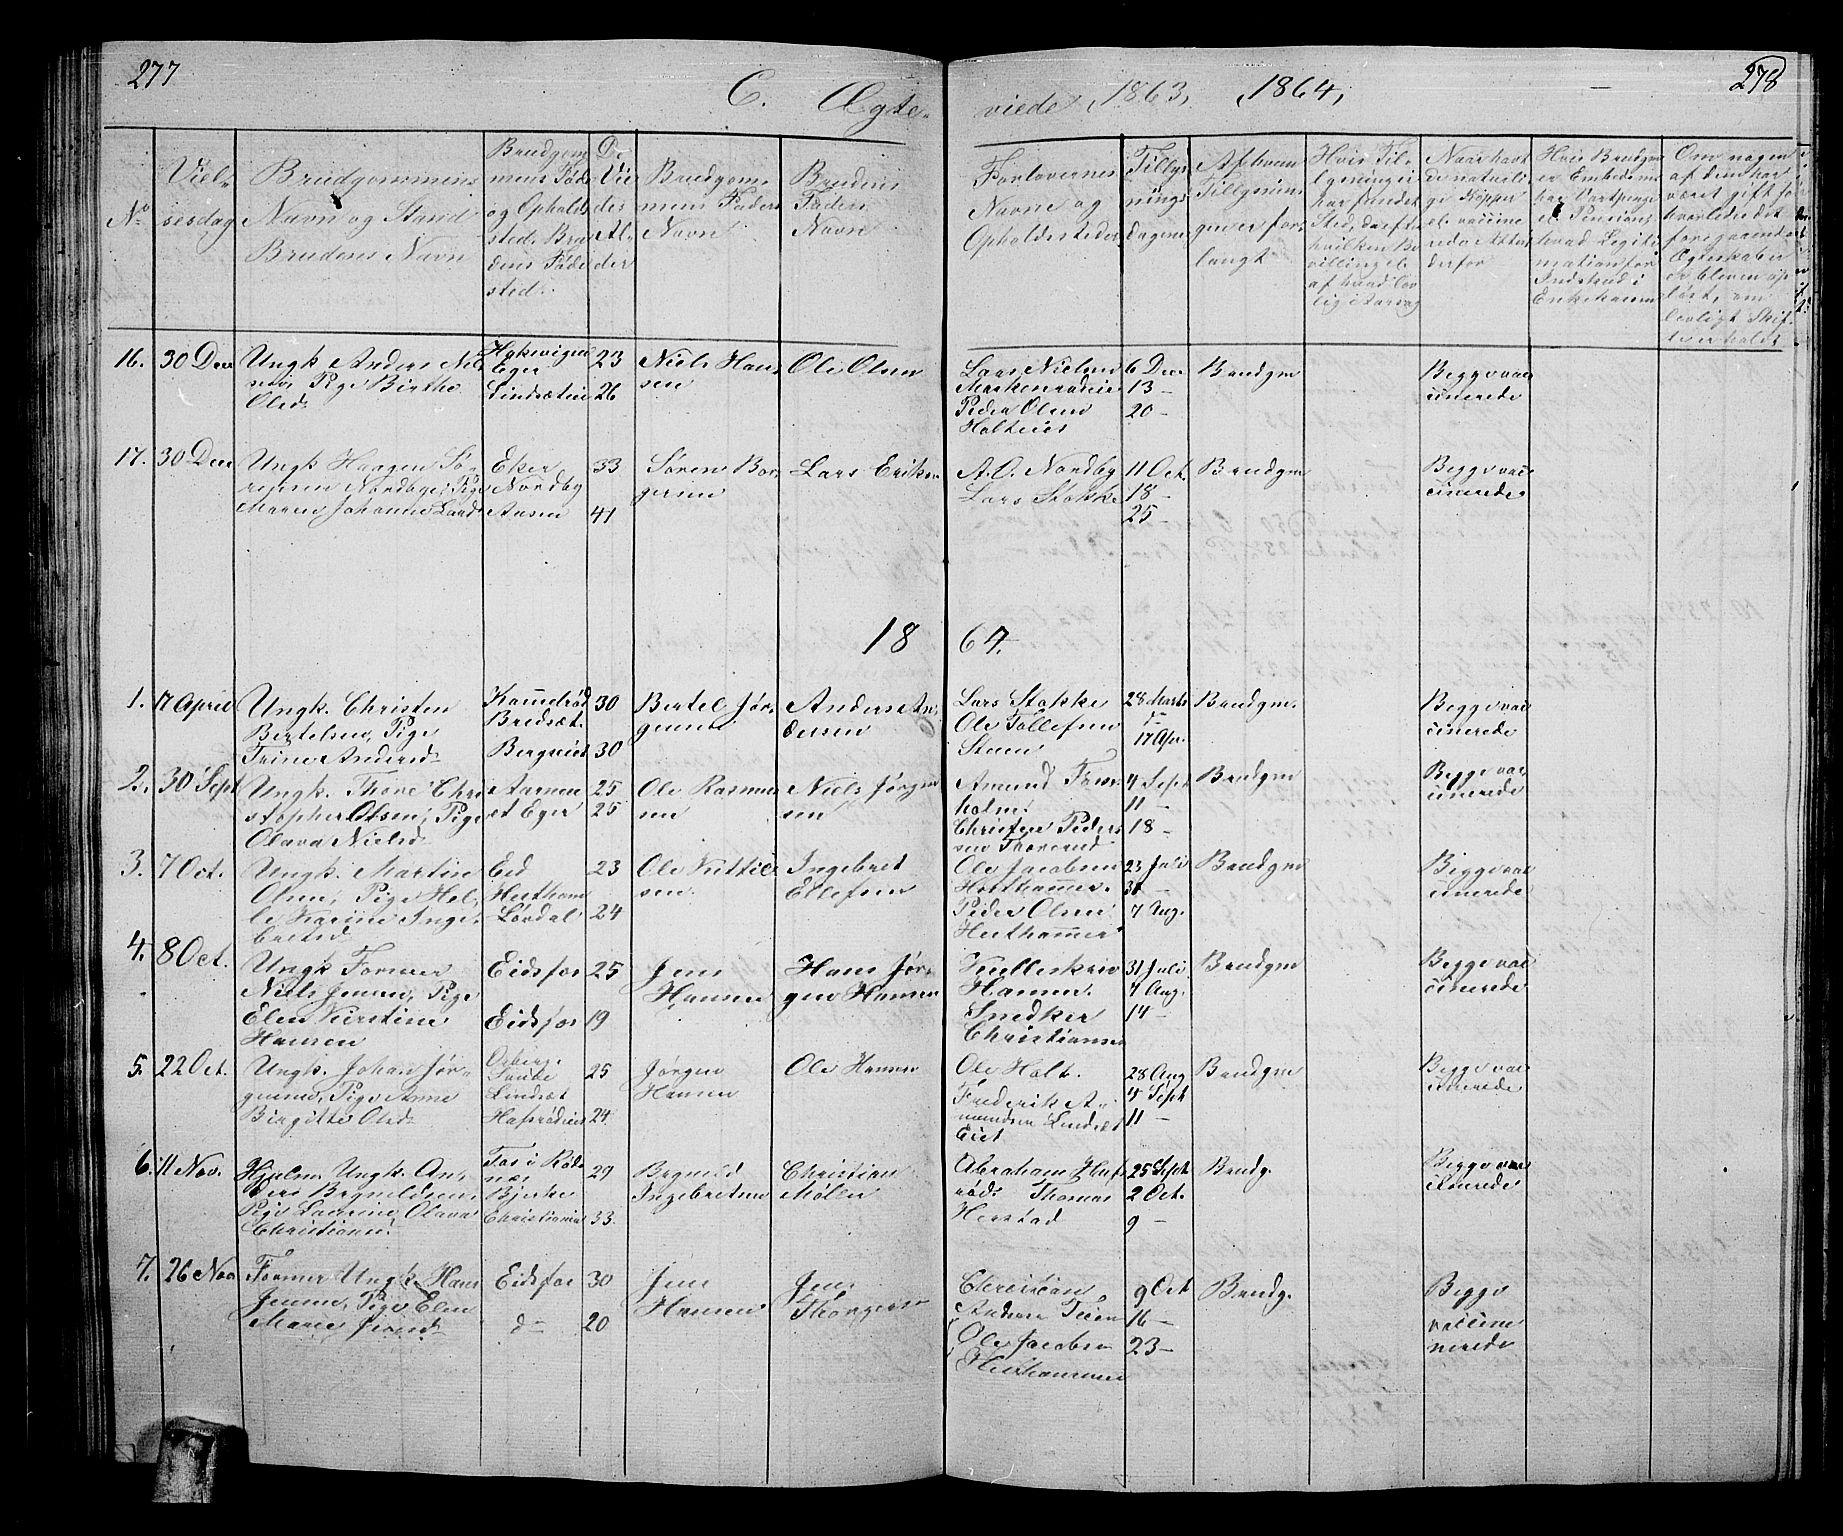 277
278
C. Ægte-
viede 1863, 1864,
No
Viel-
sesdag
Brudgommens
Navn og Stand
Brudens Navn
Brudgom-
mens Føde
og Opholds
sted, Bru
dens Føde
sted.
De
Vie
des
Al-
der
Brudgom-
mens Faders
Navn
Brudens
Faders
Navn
Forlovernes
Navne og
Opholdssteder
Tillys-
nings
dagene
Af hvem
Tillysnin-
gen er for-
langt
Hvis Til-
lysning i
har fundet
Sted, derfter
hvilken Be
villing el
af hvad lov
lig Aarsag
Naar havt
de naturli-
ge Kopper
el. vaccine
rede Attest
derfor
Hvis Brudgom
er Embedsm
har Vartpenge
el. Pension
hvad Legiti
mation for
Indskud i
Enkekassen
Om nogen
af dem har
været gift før
hvorledes det
foregaaende
Ægteskab er
er bleven op
løst, om
lovligt Skif-
te er holdt
16. 30 Decr Ungk Anders Niel
sen, Pige Birthe
Olsd.
Eger
Lindsætei
23
26
Niels Han
sen
Ole Olsen
Lars Nielsen
Peder Olsen
Holteier
6 Decr
13 —
20 —
Brudgm
Begge vac
cinerede
17. 30 Decr Ungk Haagen Sø-
rensen Nordbye, Pige
Maren Johanne Larsd
Eker
Nordby
Aasen
33
41
Søren Bor
gersen
Lars Eriksen
A.O. Nordby
Lars Stokke
11 Oct.
18 —
25 —
Brudgm
Begge vac
cinerede
18 64.
1. 17 April Ungk. Christen
Bertelsen, Pige
Trine Andersd.
Kamelrød
Bredsæt.
Bergeneiet
30
30
Bertel Jør
gensen
Anders An
dersen
Lars Stokke
Ole Tollefsen
Steen
28 Marts
17 Apr.
Brudgm.
Begge vac
cinerede
2. 30 Sept Ungk. Thore Chri
stopher Olsen, Pige
Olava Nielsd
Eger
25
25
Ole Rasmus
sen
Niels Jørgen
sen
Amund Tom
holm
Christen Peders
sen
4 Sept
11 —
18 —
Brudgm
Begge vac
cinerede
3. 7 Oct. Ungk. Martin
Olsen, Pige Hel-
le Karine Inge-
bretsd
Eed
Herthamr
Lørdal
23
24
Ole Kittil
sen.
Ingebret
Ellefsen
Ole Jacobsen
Herthammer.
Peder Olsen
Herthammer
23 Juli
31 —
7 Aug.
Brudgm
Begge vac
cinerede
4. 8 Oct. Ungk Former
Niels Jensen, Pige
Elen Kirstine
Hansen
Eidsfos
Eidsfos
25
19
Jens
Hansen
Hans Jør-
gen Hansen
Hansen.
Snedker
Christiansen
31 Juli
7 Aug.
14 —
Brudgm
Begge vac
cinerede
5. 22 Oct. Ungk. Johan Jør-
gensen, Pige Anne
Birgitte Olsd.
Lindsæt
Hafsrødeiet
25
24
Jørgen
Hansen
Ole Hansen
Ole Holt.
Frederik A-
mundsen Lindsæt
Eiet
28 Aug
4 Sept
11 —
Brudgm
Begge vac
cinerede
6. 11 Nov. Hjulm. Ungk. An-
ders Brynildsen
Pige Laurine Olava
Christiansd.
Fos i Røde
næs
Bjerke
Christiania
29
33.
Brynild
Ingebretsen
Christian
Mølen
Abraham Hafs
rød. Thomas
Herstad
25 Sept
2 Oct.
9 —
Brudg.
Begge vac
cinerede
7. 26 Nov Former Ungk Hans
Jensen, Pige Elen
Marie Jensd.
Eidsfos
do
30
20
Jens
Hansen
Jens
Thorgersen
Christian
Anders Teien
Ole Jacobsen
Herthammer
9 Oct
16 —
23 —
Brudg.
Begge
vaccine
nerede